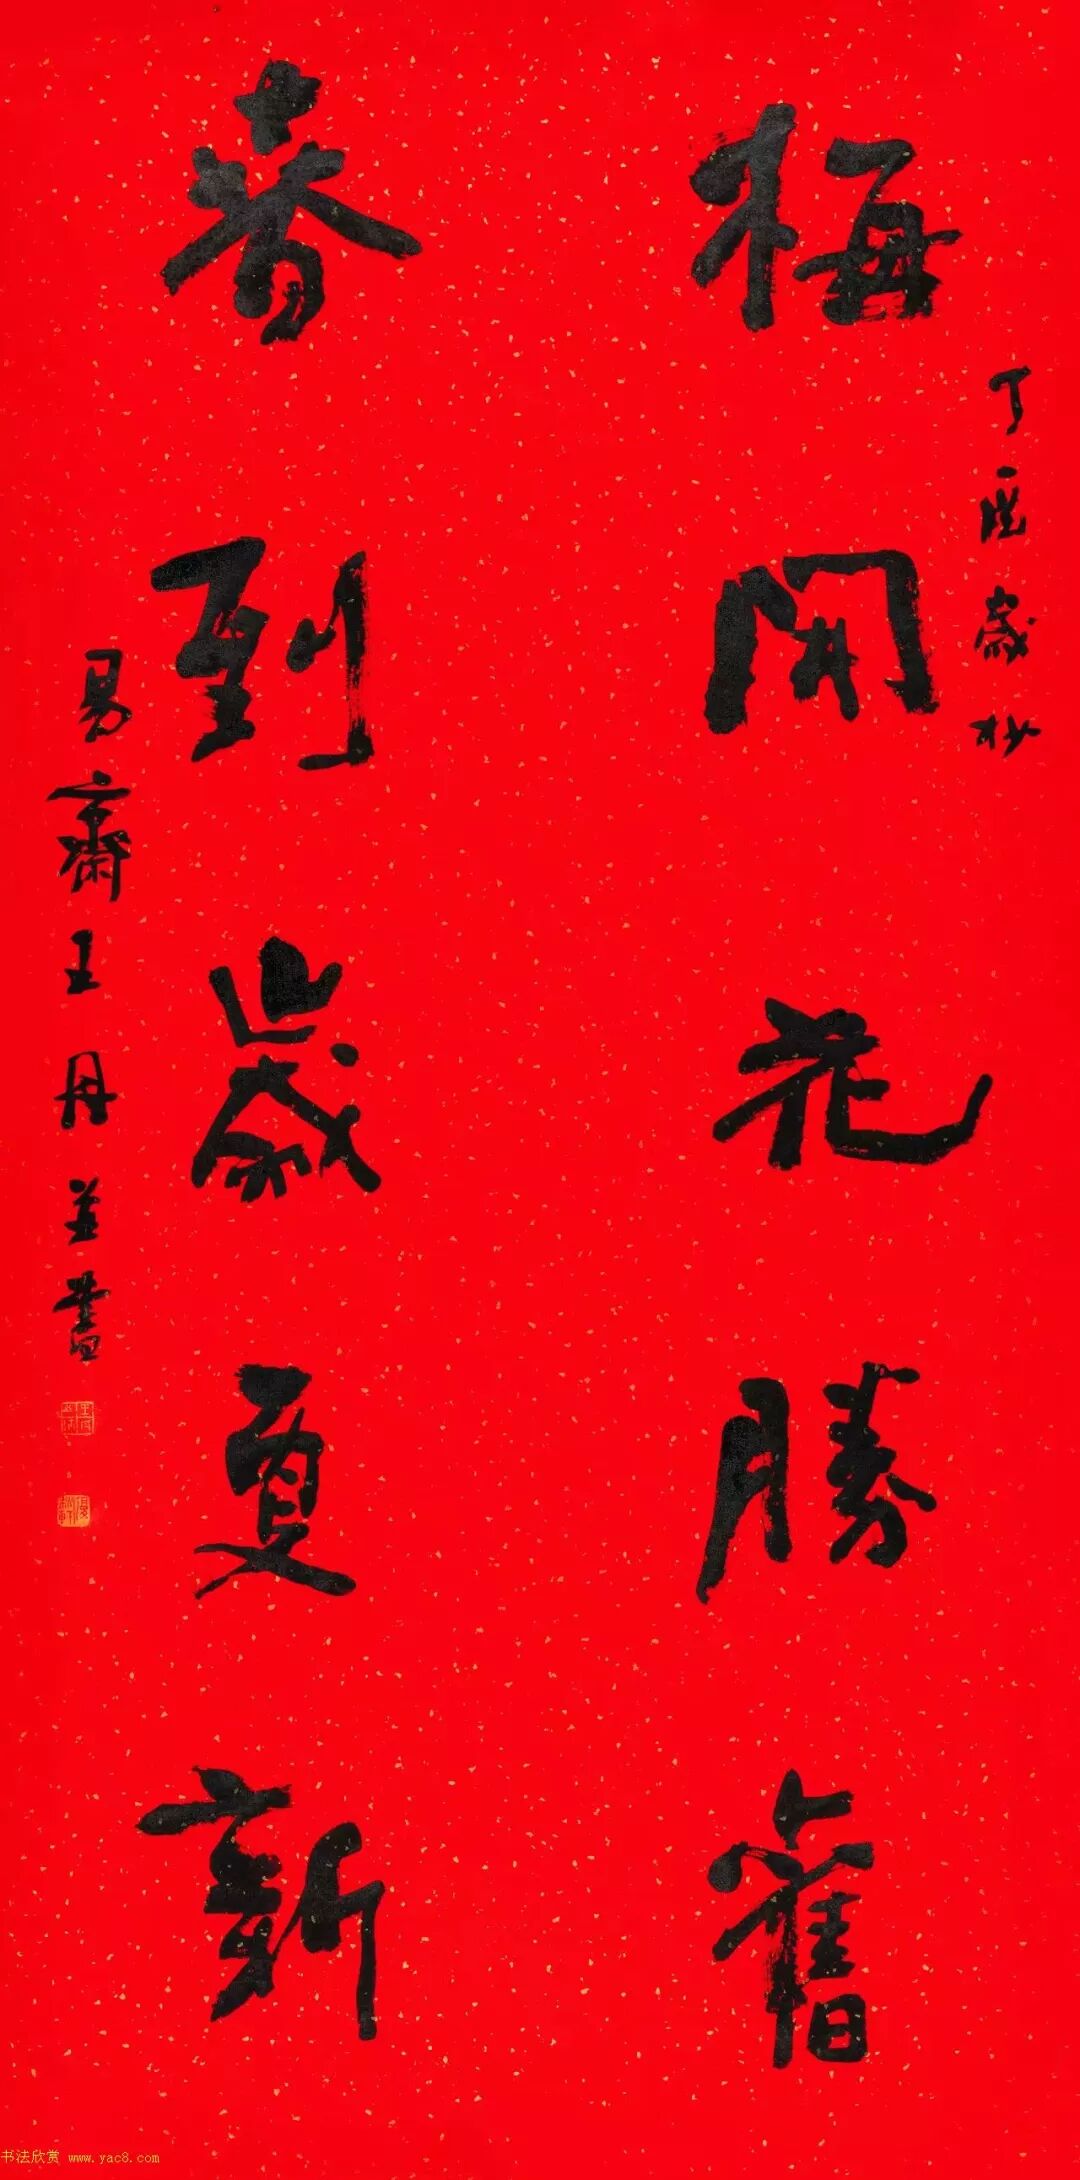 梅開花勝舊
丁酉歲杪
春到歲更新
易齋王丹並書
书法欣赏 www.yac8.com